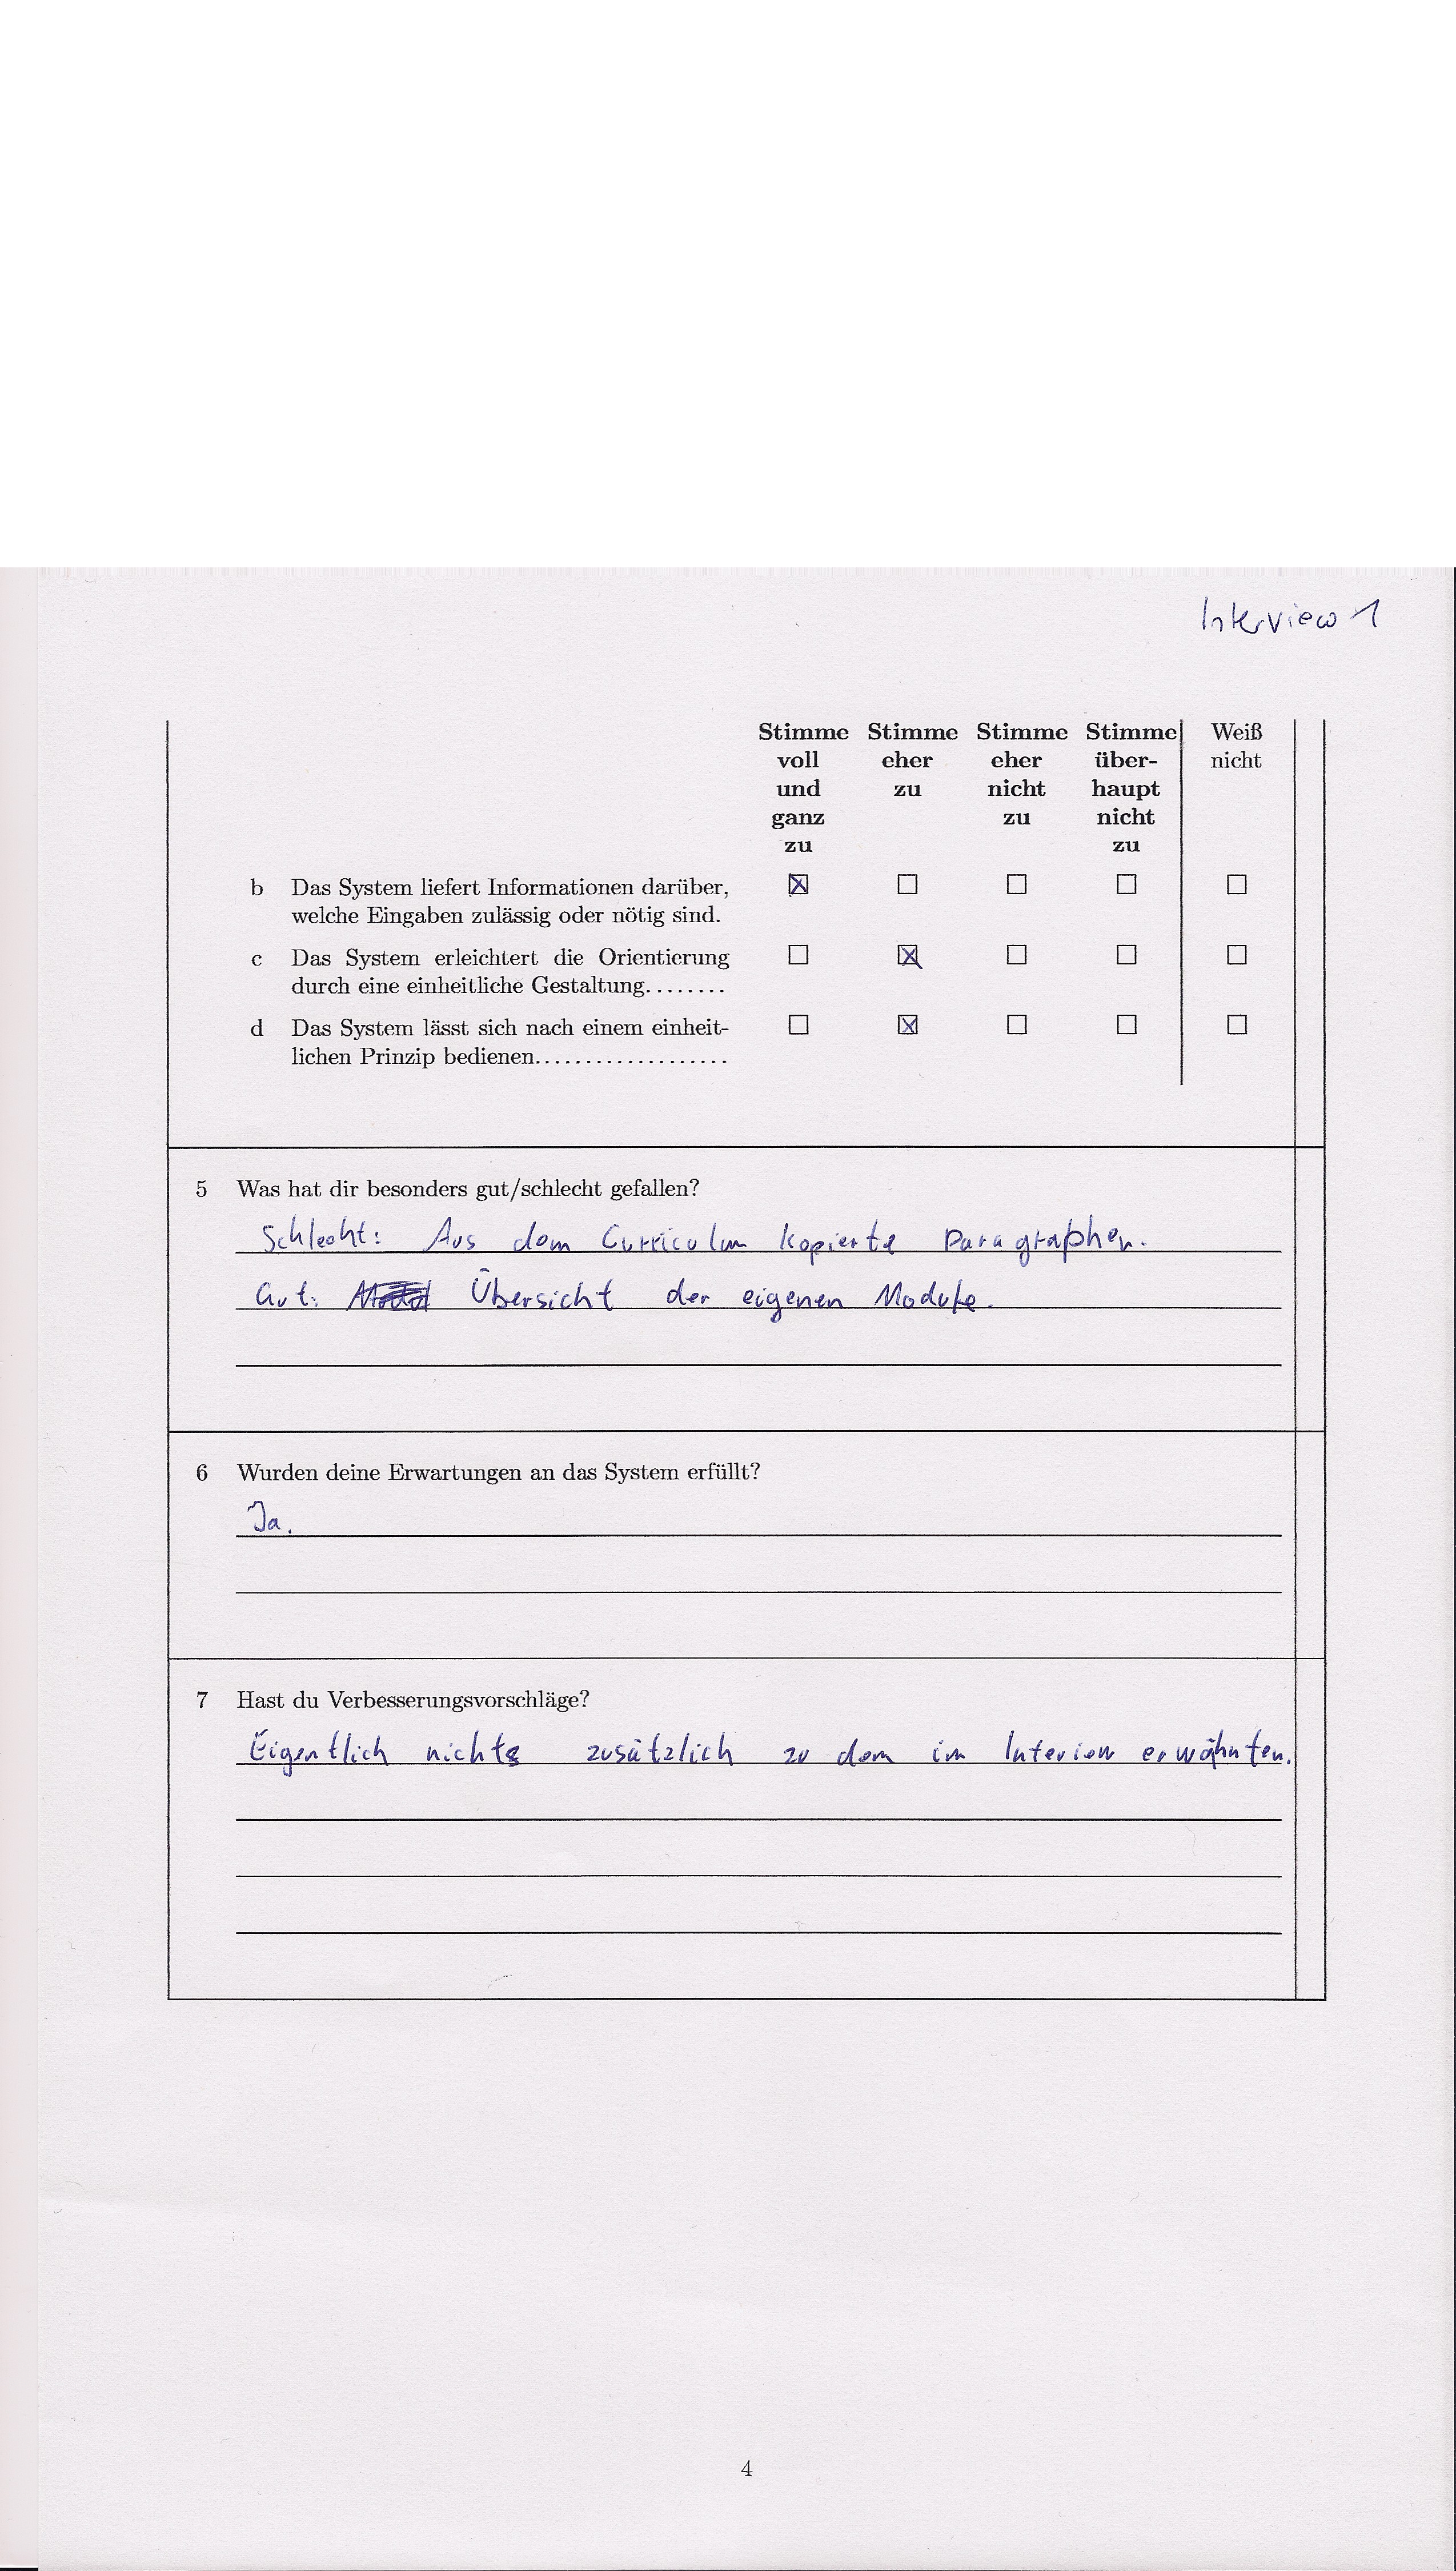 Interview 1
Stimme voll und ganz zu
Stimme eher zu
Stimme eher nicht zu
Stimme über- haupt nicht zu
Weiß nicht
b Das System liefert Informationen darüber,
welche Eingaben zulässig oder nötig sind.
c Das System erleichtert die Orientierung
durch eine einheitliche Gestaltung........
d Das System lässt sich nach einem einheit-
lichen Prinzip bedienen...................
5 Was hat dir besonders gut/schlecht gefallen?
Schlecht: Aus dem Curriculum kopierte Paragraphen.
Gut: Übersicht der eigenen Module.
6 Wurden deine Erwartungen an das System erfüllt?
Ja.
7 Hast du Verbesserungsvorschläge?
Eigentlich nichts zusätzlich zu dem im Interview erwähnten.
4